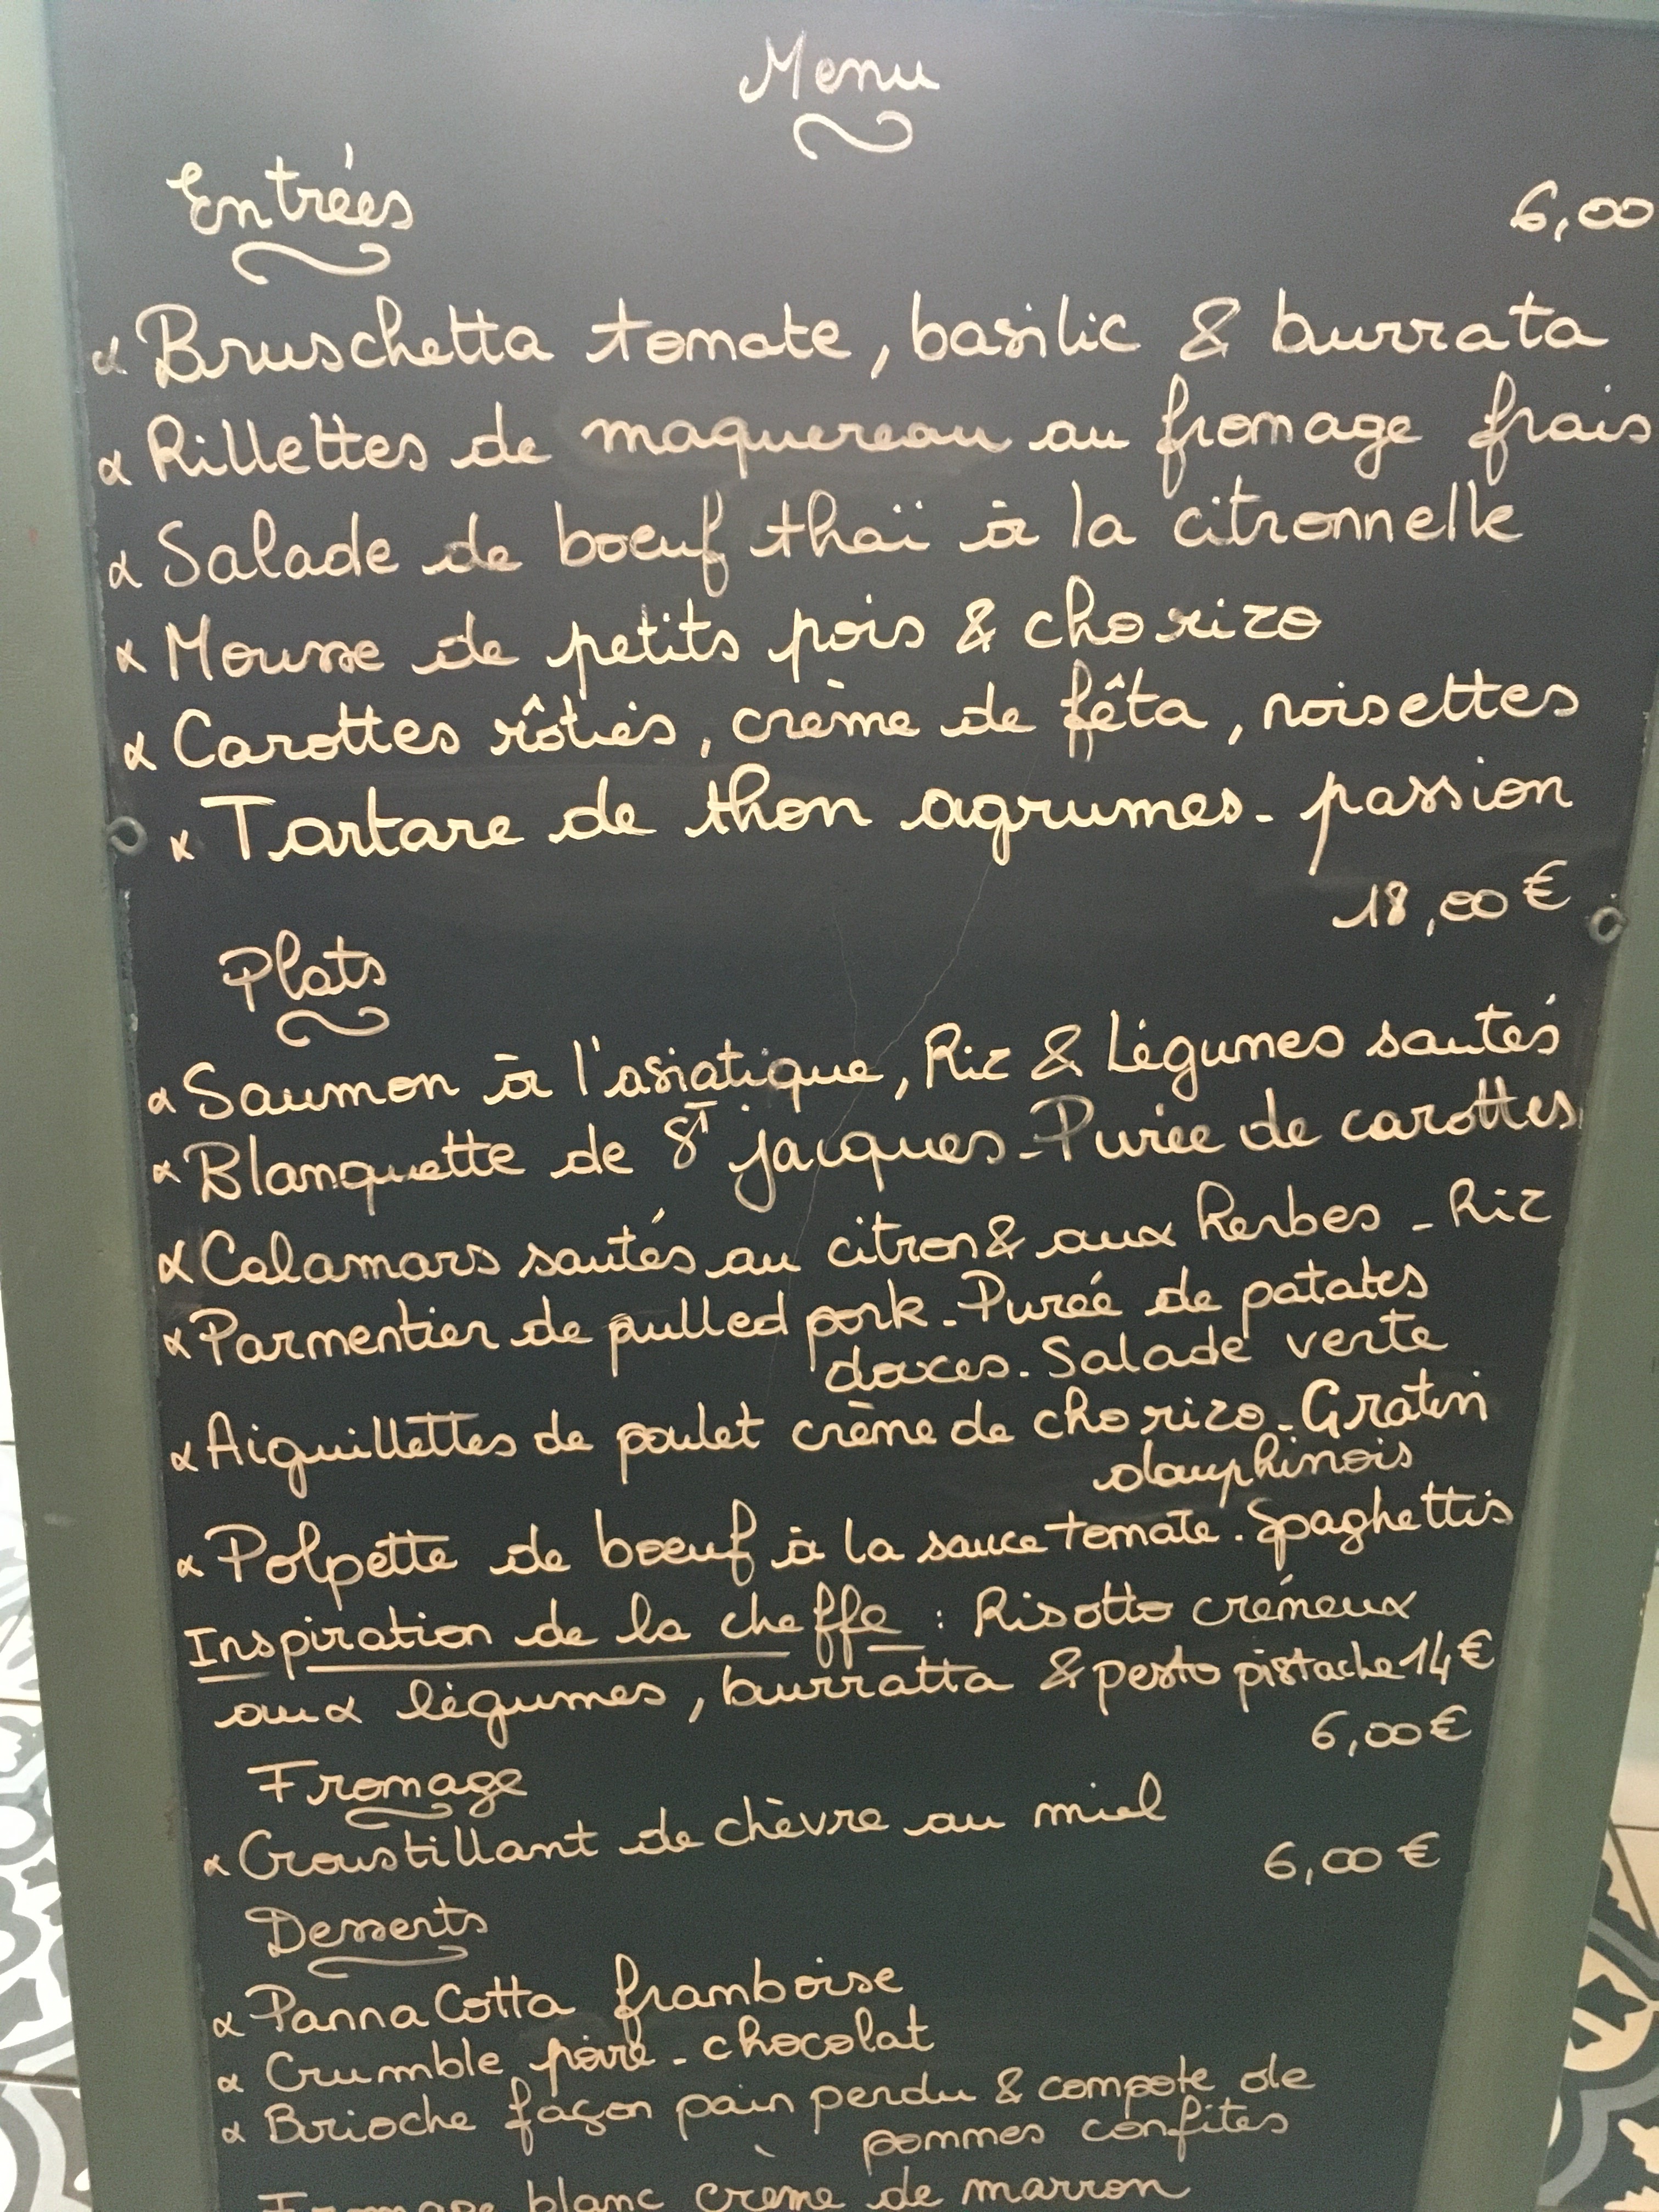 Menu
Entrées 6,00
Bruschetta tomate, basilic & burrata
Rillettes de maquereau au fromage frais
Salade de boeuf thaï à la citronnelle
Mousse de petits pois & chorizo
Carottes rôties, crème de fêta, noisettes
Tartare de thon agrumes - passion
18,00 €
Plats
Saumon à l'asiatique, Riz & Légumes sautés
Blanquette de St jacques - Purée de carottes
Calamars sautés au citron & aux herbes - Riz
Parmentier de pulled pork - Purée de patates
douces - Salade verte
Aiguillettes de poulet crème de chorizo - Gratin
dauphinois
Polpette de boeuf à la sauce tomate - Spaghettis
Inspiration de la cheffe : Risotto crémeux
aux légumes, burratta & pesto pistache 14 €
6,00 €
Fromage
Croustillant de chèvre au miel
6,00 €
Desserts
Panna Cotta framboise
Crumble poire - chocolat
Brioche façon pain perdu & compote de
pommes confites
Fromage blanc crème de marron